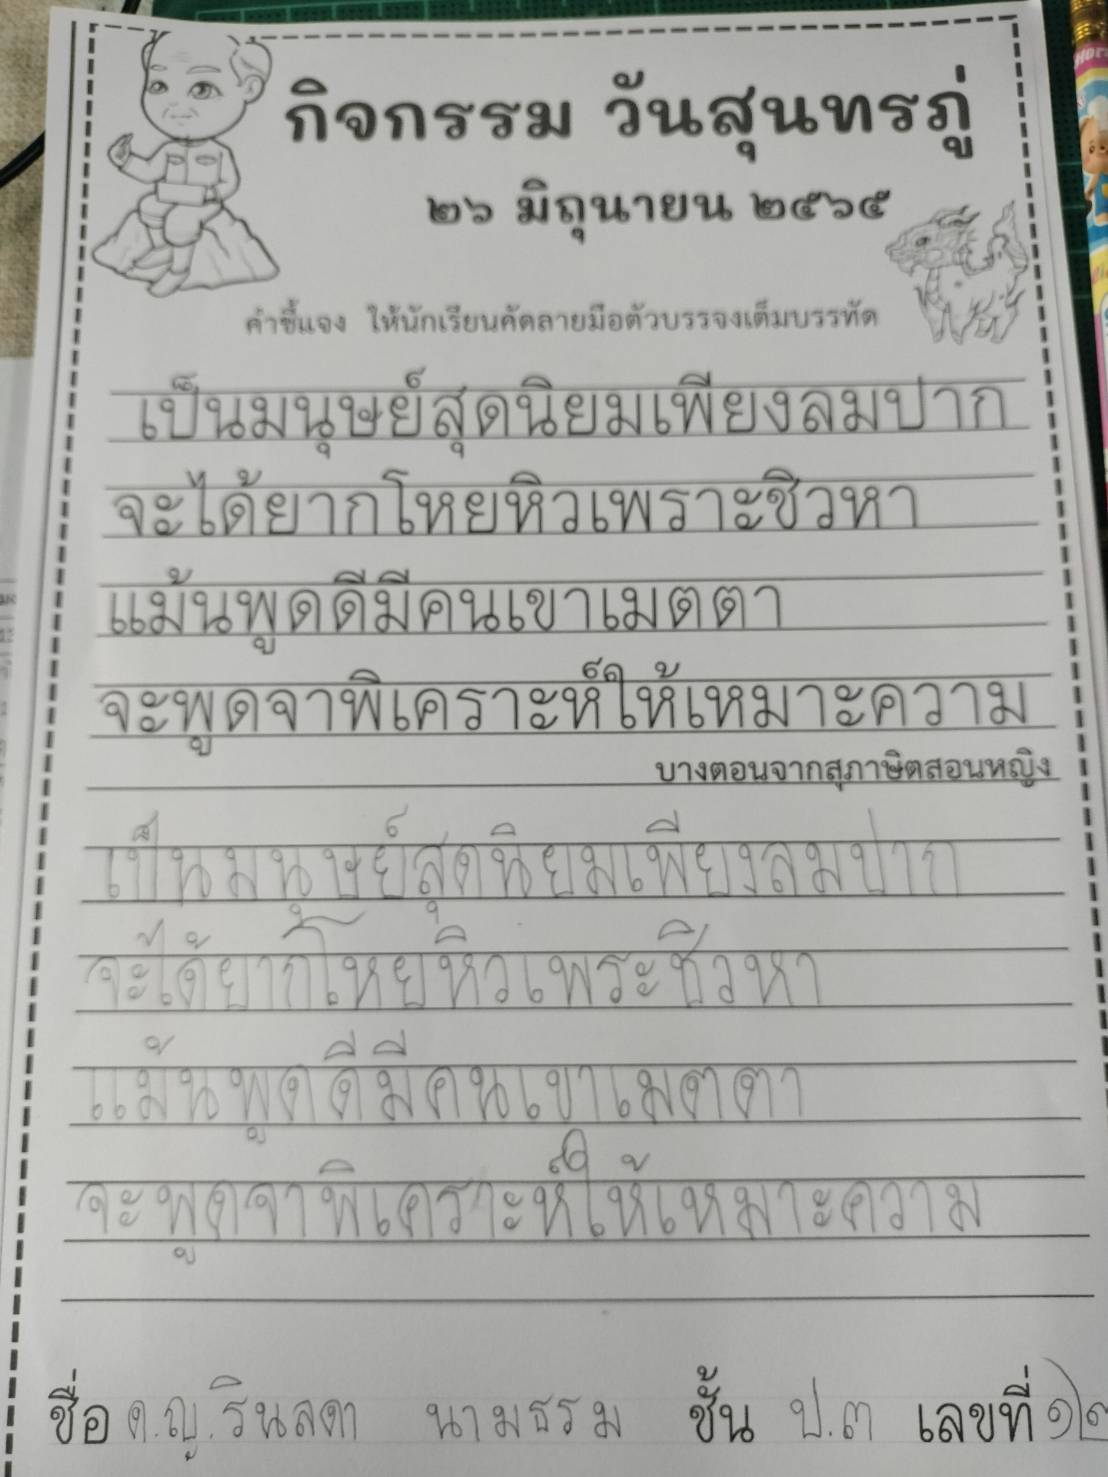 กิจกรรม วันสุนทรภู่
๒๖ มิถุนายน ๒๕๖๕
คำชี้แจง ให้นักเรียนคัดลายมือตัวบรรจงเต็มบรรทัด
เป็นมนุษย์สุดนิยมเพียงลมปาก
จะได้ยากโหยหิวเพราะชิวหา
แม้นพูดดีมีคนเขาเมตตา
จะพูดจาพิเคราะห์ให้เหมาะความ
บางตอนจากสุภาษิตสอนหญิง
เป็นมนุษย์สุดนิยมเพียงลมปาก
จะได้ยากโหยหิวเพระชีวหา
แม้นพูดดีมีคนเขาเมตตา
จะพูดจาพิเคราะห์ให้เหมาะความ
ชื่อ ด.ญ.รินลดา นามธรม ชั้น ป.๓ เลขที่ ๑๒